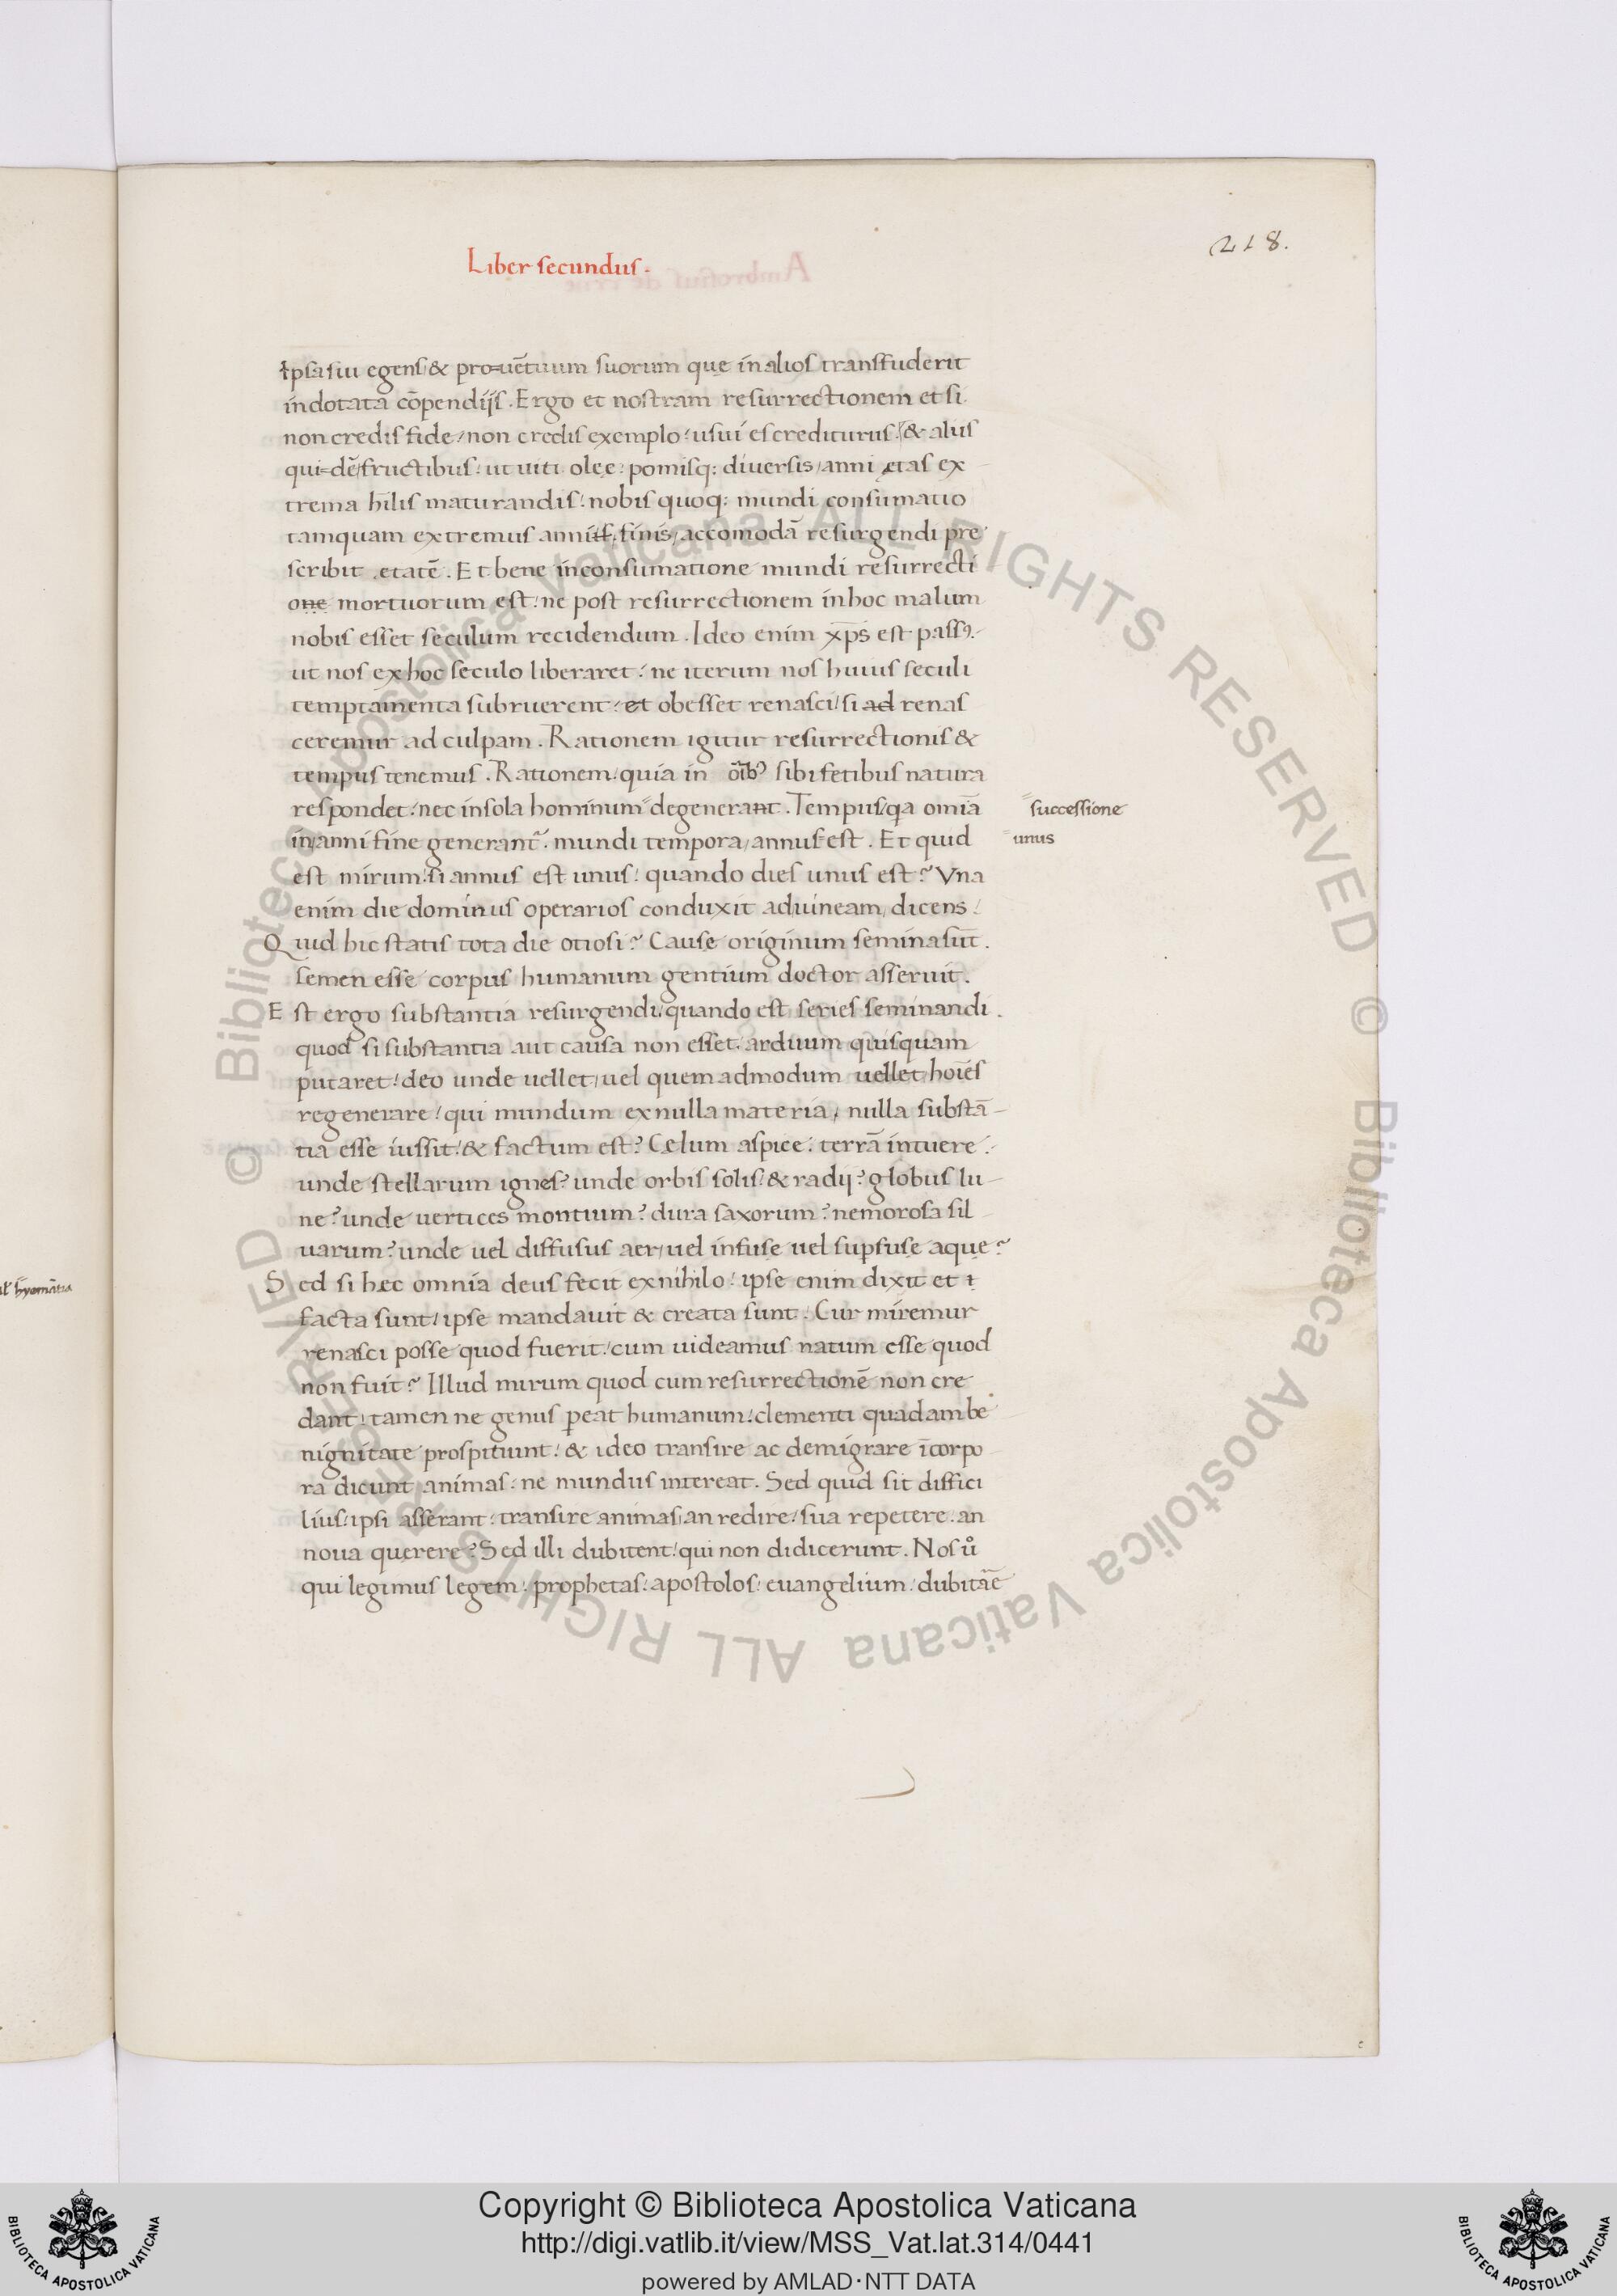 218.
Liber secundus.
ipsa sui egens/& pro=uētuum suorum que in alios transfuderit
indotata cōpendijs. Ergo et nostram resurrectionem et si
non credis fide/non credis exemplo/usui es crediturus. & aliis
qui=dē/fructibus/ut uiti olęe/pomisq: diuersis/anni ętas ex
trema habilis maturandis/nobis quoq: mundi consumatio
tamquam extremus annus/finis/accomodā resurgendi pre
scribit etatē. Et bene in consumatione mundi resurrecti
one mortuorum est/ne post resurrectionem in hoc malum
nobis esset seculum recidendum. Ideo enim xp̄s est passꝰ.
ut nos ex hoc seculo liberaret/ne iterum nos huius seculi
temptamenta subruerent/et obesset renasci/si ad renas
ceremur ad culpam. Rationem igitur resurrectionis &
tempus tenemus. Rationem/quia in oīb; sibi fetibus natura
respondet/nec in sola hominum degenerant. Tempus/qa omīa
successione
in/anni fine generant̃. mundi tempora/annus est. Et quid
unus
est mirum/si annus est unus/quando dies unus est? Vna
enim die dominus operarios conduxit ad uineam/dicens/
Quid hic statis tota die otiosi? Cause originum semina sūt.
semen esse corpus humanum gentium doctor asseruit.
Est ergo substantia resurgendi/quando est series seminandi.
quod si substantia aut causa non esset/arduum quisquam
putaret/deo unde uellet/uel quemadmodum uellet/hoīes
regenerare/qui mundum ex nulla materia/nulla substā-
tia esse iussit/& factum est? Cęlum aspice/terrā intuere.
unde stellarum ignes? unde orbis solis/& radij? globus lu-
ne? unde uertices montium? dura saxorum? nemorosa sil
uarum? unde uel diffusus aer/uel infusę uel supfusę aquę?
Sed si hęc omnia deus fecit ex nihilo/ipse enim dixit et
facta sunt/ipse mandauit & creata sunt. Cur miremur
renasci posse quod fuerit/cum uideamus natum esse quod
non fuit? Illud mirum quod cum resurrectionē non cre
dant/tamen ne genus peat humanum/clementi quadam be
nignitate prospitiunt/& ideo transire ac demigrare ī corpo
ra dicunt animas/ne mundus intereat. Sed quid sit diffici
lius/ipsi asserant/transire animas/an redire/sua repetere/an
noua querere? Sed illi dubitent/qui non didicerunt. Nos ů
qui legimus legem/prophetas/apostolos/euangelium/dubitāe
© Biblioteca Apostolica Vaticana ALL RIGHTS RESERVED © Biblioteca Apostolica Vaticana ALL RIGHTS RESERVED
Copyright © Biblioteca Apostolica Vaticana
http://digi.vatlib.it/view/MSS_Vat.lat.314/0441
powered by AMLAD·NTT DATA
BIBLIOTECA APOSTOLICA VATICANA
BIBLIOTECA APOSTOLICA VATICANA